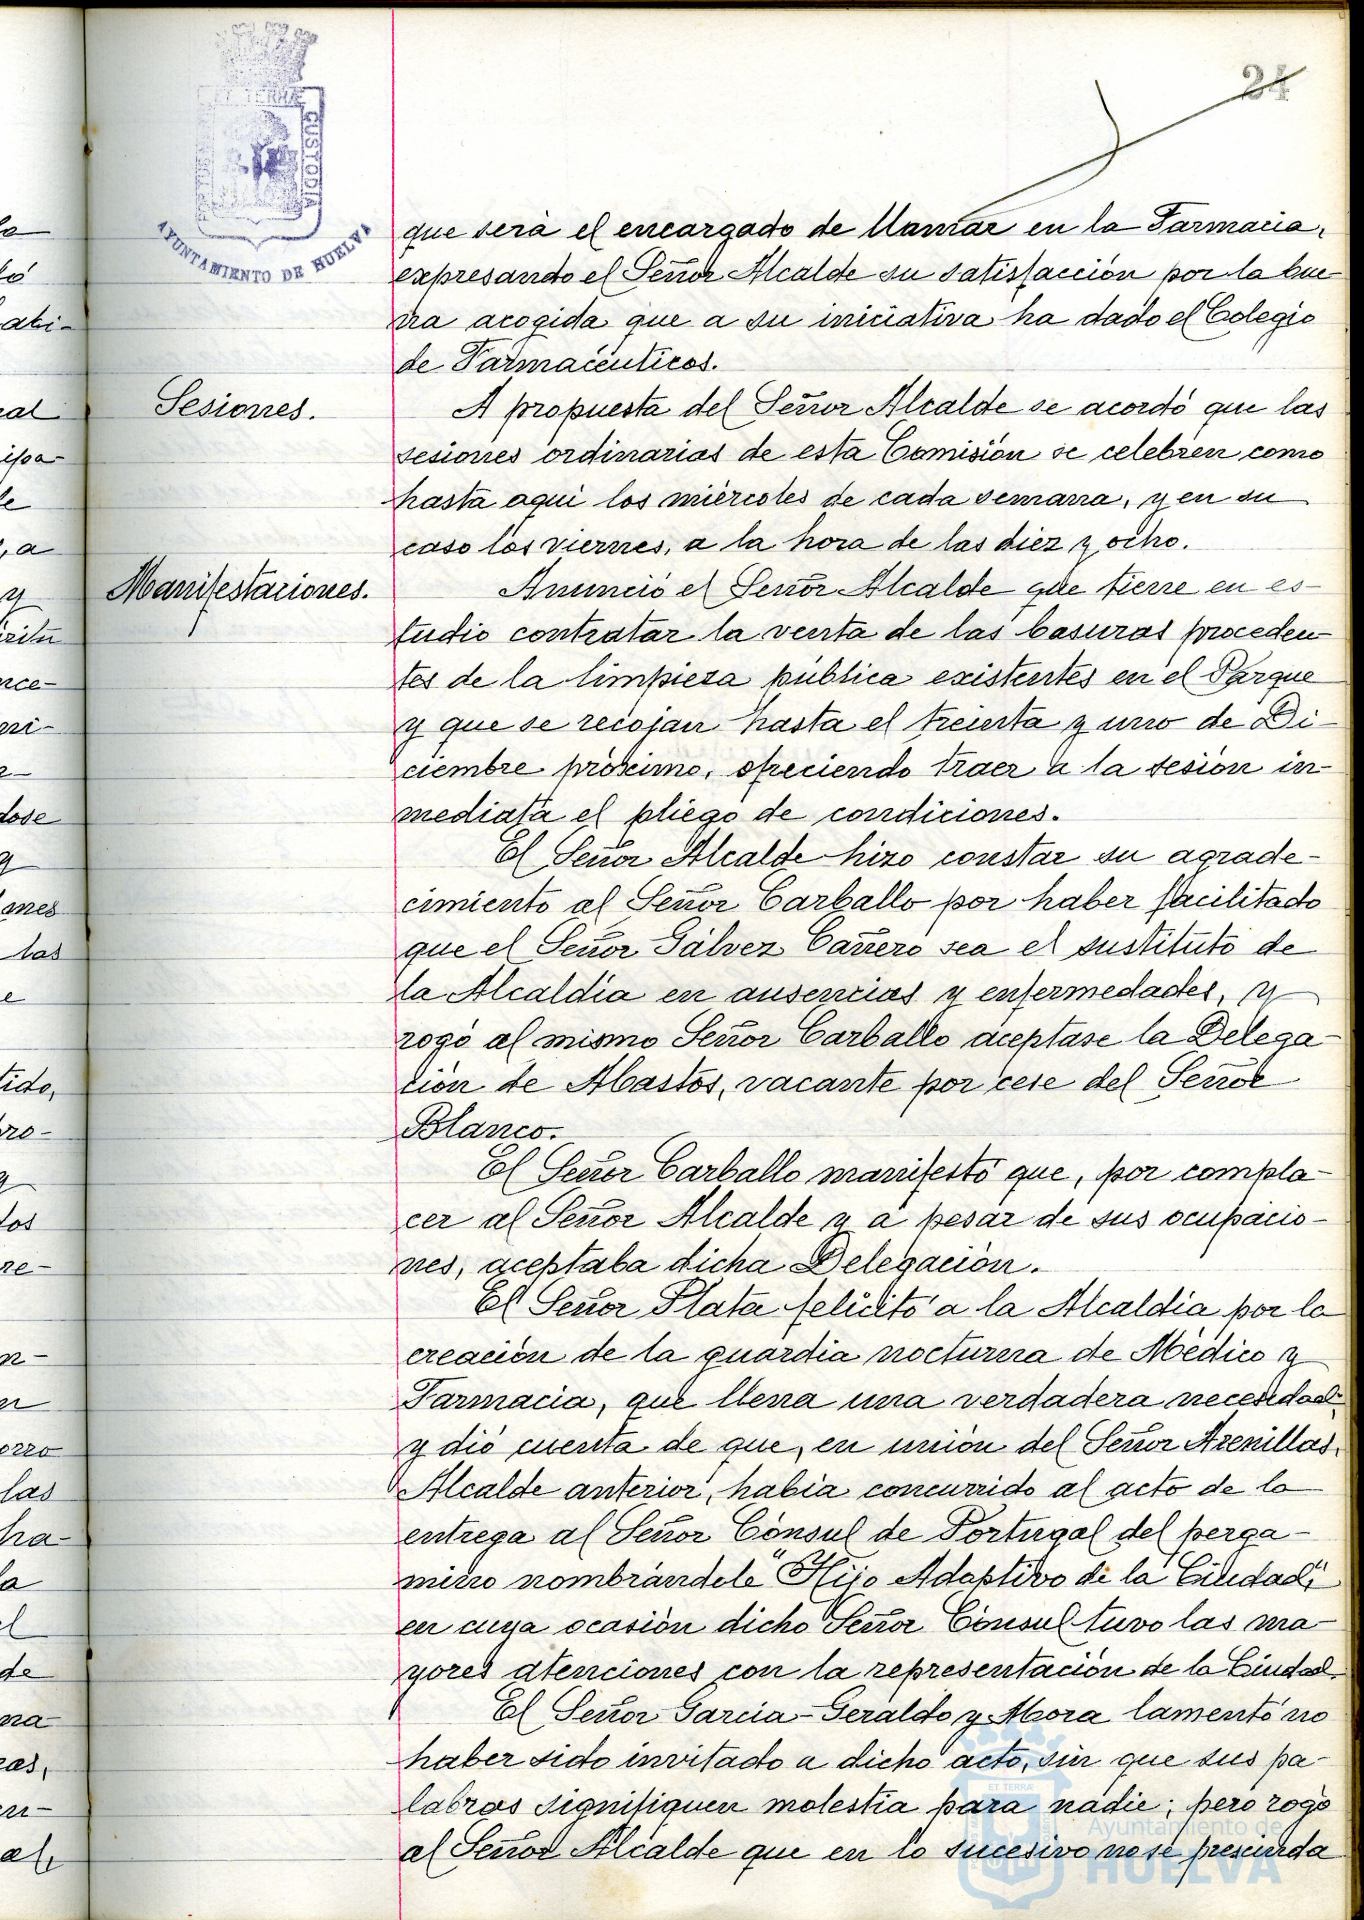 24
ET TERRÆ
CUSTODIA
AYUNTAMIENTO DE HUELVA
que será el encargado de llamar en la Farmacia,
expresando el Señor Alcalde su satisfacción por la bue-
na acogida que a su iniciativa ha dado el Colegio
de Farmacéuticos.
Sesiones.
A propuesta del Señor Alcalde se acordó que las
sesiones ordinarias de esta Comisión se celebren como
hasta aquí los miércoles de cada semana, y en su
caso los viernes, a la hora de las diez y ocho.
Manifestaciones.
Anunció el Señor Alcalde que tiene en es-
tudio contratar la venta de las basuras proceden-
tes de la limpieza pública existentes en el Parque
y que se recojan hasta el treinta y uno de Di-
ciembre próximo, ofreciendo traer a la sesión in-
mediata el pliego de condiciones.
El Señor Alcalde hizo constar su agrade-
cimiento al Señor Carballo por haber facilitado
que el Señor Gálvez Cañero sea el sustituto de
la Alcaldía en ausencias y enfermedades, y
rogó al mismo Señor Carballo aceptase la Delega-
ción de Abastos, vacante por cese del Señor
Blanco.
El Señor Carballo manifestó que, por compla-
cer al Señor Alcalde y a pesar de sus ocupacio-
nes, aceptaba dicha Delegación.
El Señor Plata felicitó a la Alcaldía por la
creación de la guardia nocturna de Médico y
Farmacia, que llena una verdadera necesidad,
y dió cuenta de que, en unión del Señor Arenillas,
Alcalde anterior, había concurrido al acto de la
entrega al Señor Cónsul de Portugal del perga-
mino nombrándole "Hijo Adoptivo de la Ciudad",
en cuya ocasión dicho Señor Cónsul tuvo las ma-
yores atenciones con la representación de la Ciudad.
El Señor García-Geraldo y Mora lamentó no
haber sido invitado a dicho acto, sin que sus pa-
labras signifiquen molestia para nadie; pero rogó
al Señor Alcalde que en lo sucesivo no se prescinda
ET TERRÆ
Ayuntamiento de
HUELVA